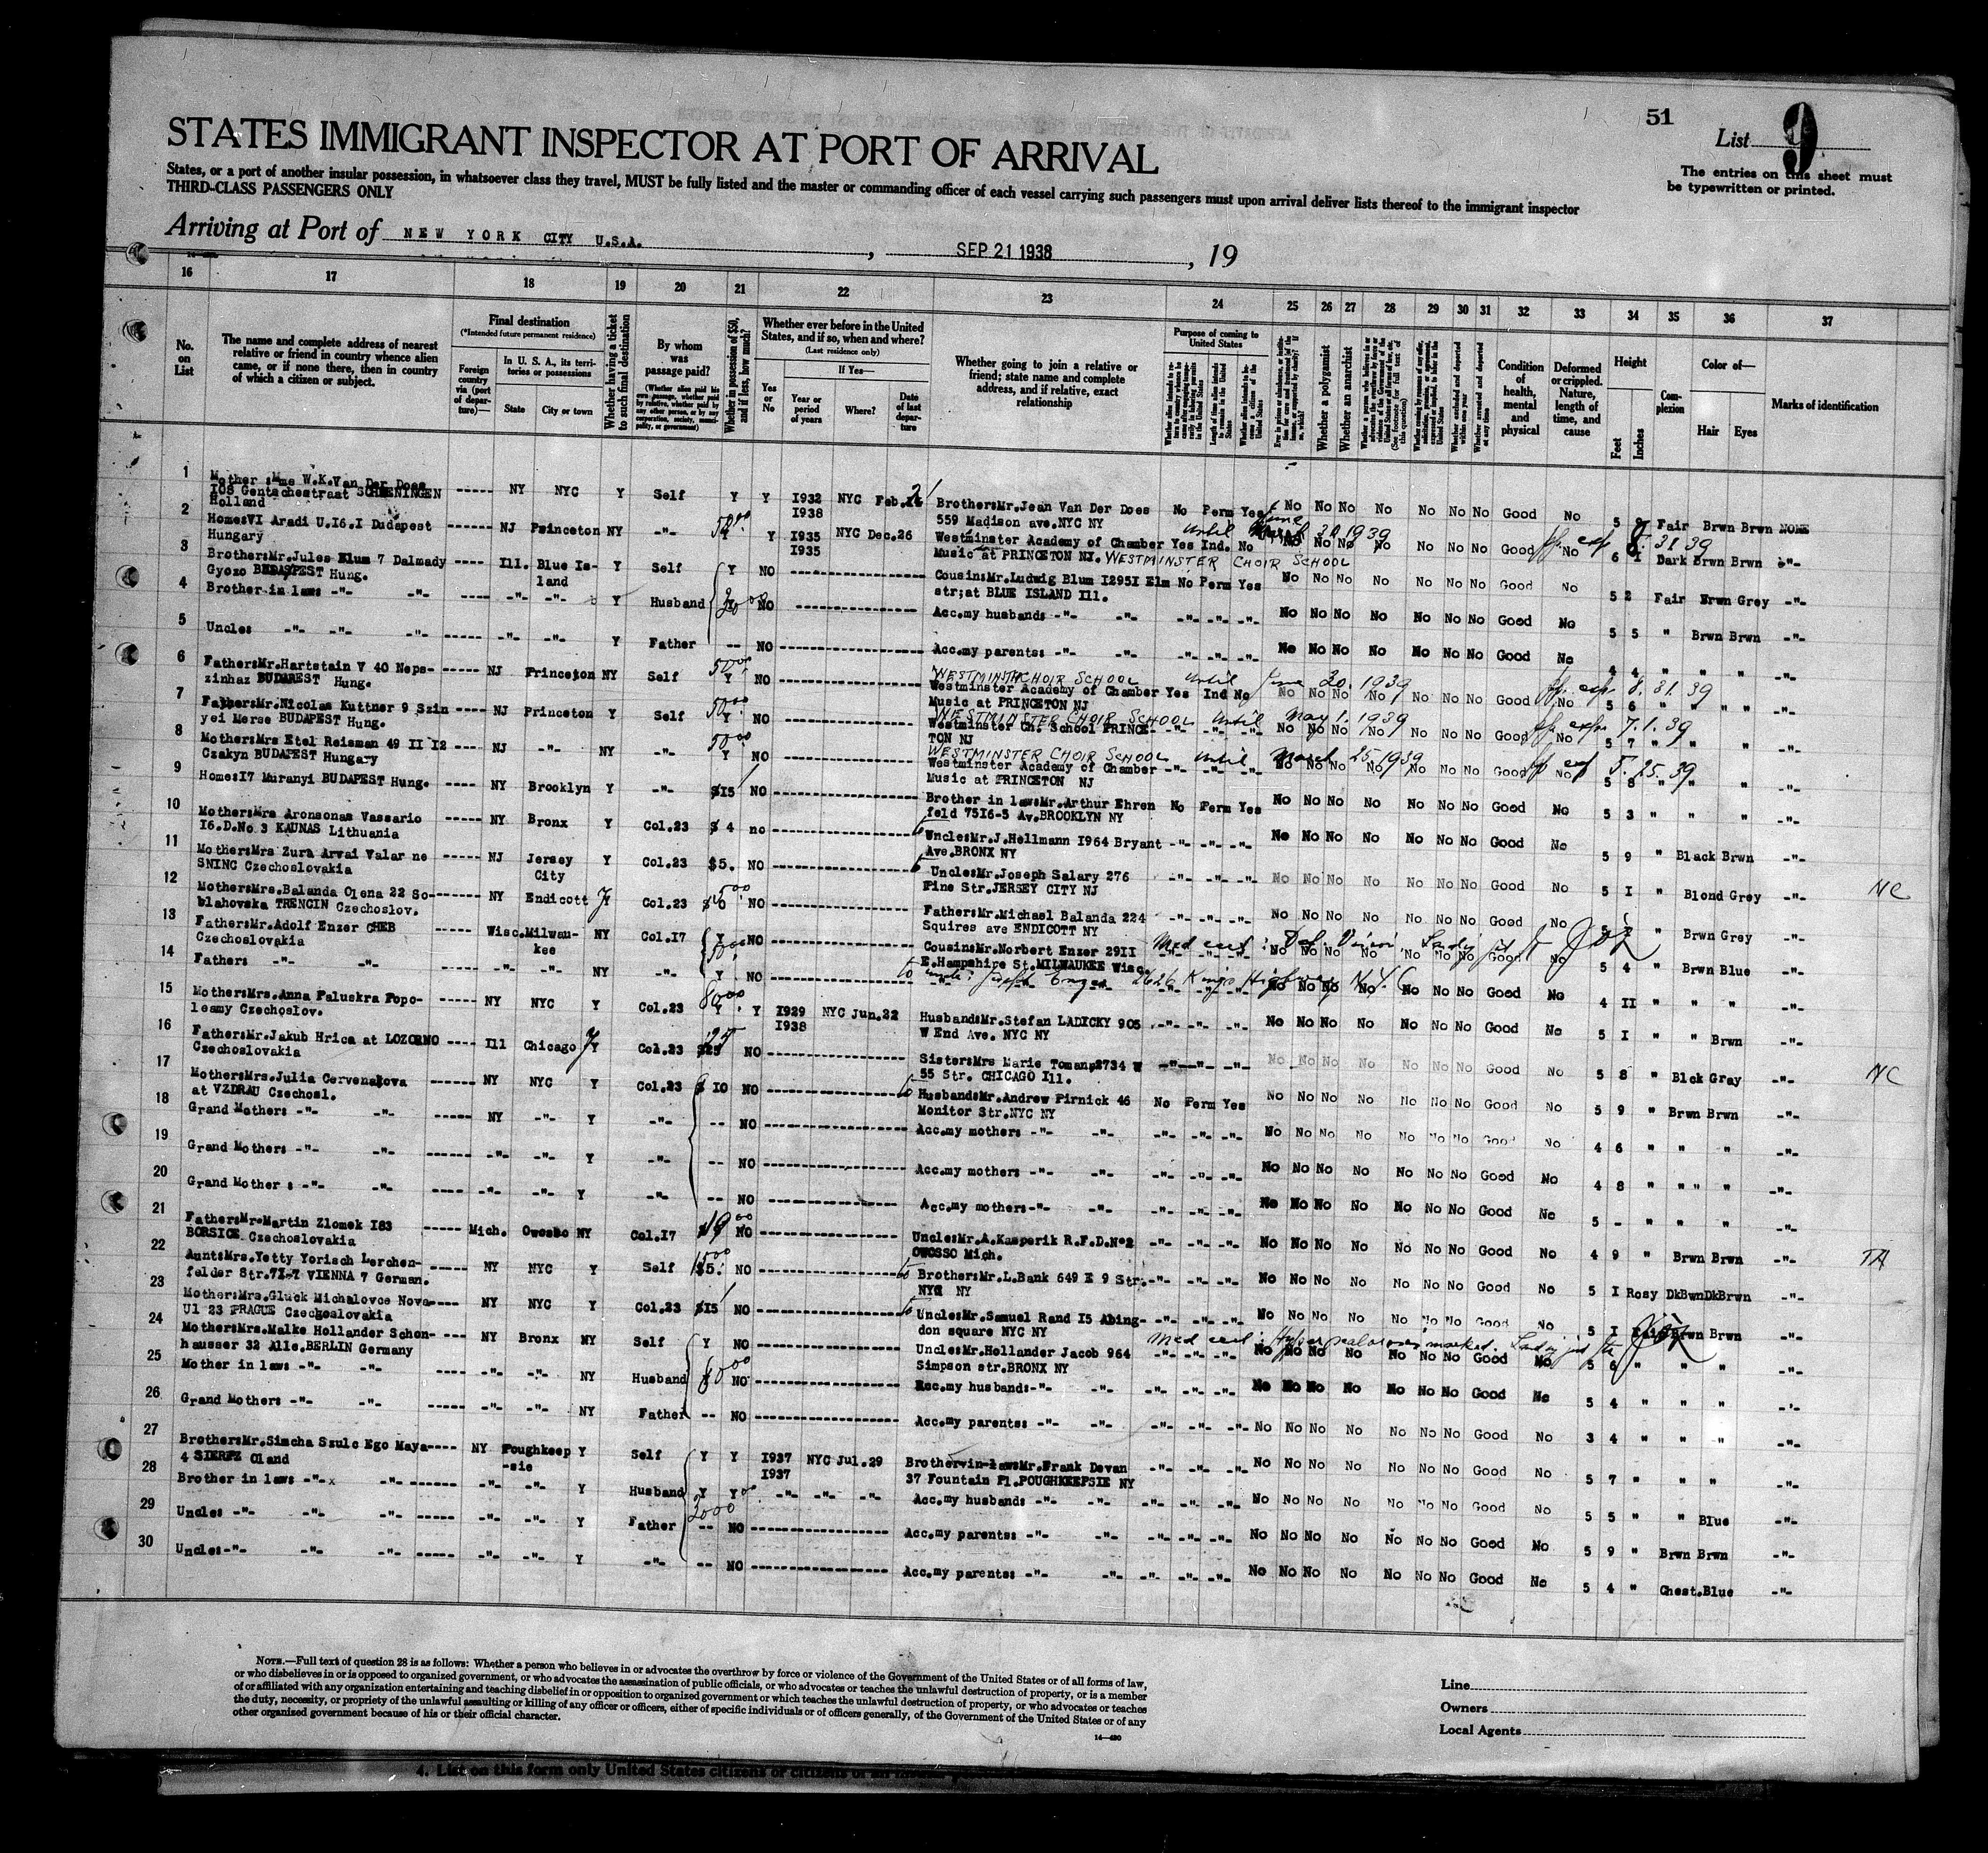 51
List 9
STATES IMMIGRANT INSPECTOR AT PORT OF ARRIVAL
The entries on this sheet must
be typewritten or printed.
States, or a port of another insular possession, in whatsoever class they travel, MUST be fully listed and the master or commanding officer of each vessel carrying such passengers must upon arrival deliver lists thereof to the immigrant inspector
THIRD-CLASS PASSENGERS ONLY
Arriving at Port of NEW YORK CITY U.S.A. , SEP 21 1938 , 19
16 17 18 19 20 21 22 23 24 25 26 27 28 29 30 31 32 33 34 35 36 37
No. on List
The name and complete address of nearest relative or friend in country whence alien came, or if none there, then in country of which a citizen or subject.
Final destination
(*Intended future permanent residence)
Foreign country via (port of departure)—
In U. S. A., its territories or possessions
State
City or town
Whether having a ticket to such final destination
By whom was passage paid?
(Whether alien paid his own passage, whether paid by relative, whether paid by any other person, or by any corporation, society, municipality, or government)
Whether in possession of $50, and if less, how much?
Whether ever before in the United States, and if so, when and where?
(Last residence only)
Yes or No
If Yes—
Year or period of years
Where?
Date of last departure
Whether going to join a relative or friend; state name and complete address, and if relative, exact relationship
Purpose of coming to United States
Whether a polygamist
Whether an anarchist
(See footnote for full text of this question)
Whether excluded and deported within one year
Whether arrested and deported at any time
Condition of health, mental and physical
Deformed or crippled. Nature, length of time, and cause
Height
Feet
Inches
Complexion
Color of—
Hair
Eyes
Marks of identification
1 Mother :Mme W.K.Van Der Does ----- NY NYC Y Self Y Y 1932 NYC Feb. Brother:Mr.Jean Van Der Does No Perm Yes No No No No No No No Good No 5 Fair Brwn Brwn NONE
108 Gentschestraat SCHENINGEN 1938 559 Madison ave.NYC NY
Holland
2 Home:VI Aradi U.16.I Budapest ------ NJ Princeton NY -"- 50.00 Y 1935 NYC Dec.26 Westminster Academy of Chamber Yes Ind. No No No No No No No No Good No 6 1 Dark Brwn Brwn -"-
Hungary 1935 Music at PRINCETON NJ. WESTMINSTER CHOIR SCHOOL
until June 30 1939
8.31 39
3 Brother:Mr.Jules Blum 7 Dalmady Ill. Blue Is- Y Self Y NO Cousin:Mr.Ludwig Blum 12951 Elm No Perm Yes No No No No No No No Good No 5 2 Fair Brwn Grey -"-
Gyozo BUDAPEST Hung. land str;at BLUE ISLAND Ill.
4 Brother in law: -"- -"- ---- -"- -"- Y Husband NO Acc.my husband: -"- -"- -"- -"- -"- No No No No No No No Good No 5 5 " Brwn Brwn -"-
5 Uncle: -"- -"- -"- ----- -"- -"- Y Father -- NO Acc.my parents: -"- -"- -"- -"- -"- No No No No No No No Good No 4 4 " " " -"-
6 Father:Mr.Hartstain V 40 Neps- ----- NJ Princeton NY Self 50.00 Y NO WESTMINSTER CHOIR SCHOOL until June 30, 1939 8.31.39
zinhaz BUDAPEST Hung. Westminster Academy of Chamber Yes Ind No No No No No No No No Good No 5 6 " " " -"-
Music at PRINCETON NJ
7 Father:Mr.Nicolas Kuttner 9 Szin -- NJ Princeton Y Self 50.00 Y NO WESTMINSTER CHOIR SCHOOL until May 1. 1939 7.1.39
yei Merse BUDAPEST Hung. Westminster Ch. School PRINCE- -"- -"- -"- No No No No No No No Good No 5 7 " " " -"-
TON NJ
8 Mother:Mrs Etel Reisman 49 II 12 ---- NJ -"- NY -"- 50.00 Y NO WESTMINSTER CHOIR SCHOOL until March 25-1939 5.25.39
Czakyn BUDAPEST Hungary Westminster Academy of Chamber -"- -"- -"- No No No No No No No Good No 5 8 " " " -"-
Music at PRINCETON NJ
9 Home:17 Muranyi BUDAPEST Hung. ----- NY Brooklyn Y -"- $15 NO Brother in law:Mr.Arthur Ehren No Perm Yes No No No No No No No Good No 5 3 " " " -"-
feld 7516-5 Av.BROOKLYN NY
10 Mother:Mrs Aronsonas Vassario ----- NY Bronx Y Col.23 $ 4 no Uncle:Mr.J.Hellmann 1964 Bryant -"- -"- -"- No No No No No No No Good No 5 9 " Black Brwn -"-
16.D.No 3 KAUNAS Lithuania Ave.BRONX NY
11 Mother:Mrs Zura Arvai Valar ne ----- NJ Jersey City Y Col.23 $5. NO Uncle:Mr.Joseph Salary 276 -"- -"- -"- No No No No No No No Good No 5 1 " Blond Grey -"- NC
SNINC Czechoslovakia Pine Str.JERSEY CITY NJ
12 Mother:Mrs.Balanda Olena 22 So- ---- NY Endicott Col.23 NO Father:Mr.Michael Balanda 224 -"- -"- -"- No No No No No No No Good No 5 " Brwn Grey -"-
blahovska TRENCIN Czechoslov. Squires ave ENDICOTT NY
13 Father:Mr.Adolf Enzer CHEB ----- Wisc. Milwau- NY Col.17 Y NO Cousin:Mr.Norbert Enzer 2911 Med cert: No No No No No No No Good No 5 4 " Brwn Blue -"-
Czechoslovakia kee E.Hampshire St.MILWAUKEE Wisc.
14 Father: -"- -"- ----- -"- -"- NY -"- Y NO to uncle: Joseph Enzer 2626 Kings Highway N.Y.C No No No No No No No Good No 4 11 " " " -"-
15 Mother:Mrs.Anna Paluskra Popo- ---- NY NYC Y Col.23 Y Y 1929 NYC Jun.22 Husband:Mr.Stefan LADICKY 905 -"- -"- -"- No No No No No No No Good No 5 1 " " Brwn -"-
leamy Czechoslov. 1938 W End Ave. NYC NY
16 Father:Mr.Jakub Hrica at LOZORNO ---- Ill Chicago Y Col.23 $25 NO Sister:Mrs Marie Toman,2734 W -"- -"- -"- No No No No No No No Good No 5 8 " Blck Gray -"- NC
Czechoslovakia 55 Str. CHICAGO Ill.
17 Mother:Mrs.Julia Cervenakova ------ NY NYC Y Col.23 $ 10 NO to Husband:Mr.Andrew Pirnick 46 No Perm Yes No No No No No No No Good No 5 9 " Brwn Brwn -"-
at VZDRAU Czechosl. Monitor Str.NYC NY
18 Grand Mother: -"- -"- ------ NY -"- Y -"- -- NO Acc.my mother: -"- -"- -"- -"- -"- No No No No No No No Good No 4 6 " " " -"-
19 Grand Mother: -"- -"- ----- -"- -"- Y -"- -- NO Acc.my mother: -"- -"- -"- -"- -"- No No No No No No No Good No 4 8 " " " -"-
20 Grand Mother : -"- -"- ---- -"- -"- Y -"- -- NO Acc.my mother: -"- -"- -"- -"- -"- No No No No No No No Good No 5 - " " " -"-
21 Father:Mr.Martin Zlomek 183 ----- Mich. Owosso NY Col.17 NO Uncle:Mr.A.Kasperik R.F.D.No2 -"- -"- -"- No No No No No No No Good No 4 9 " Brwn Brwn -"- TA
BORSICE Czechoslovakia OWOSSO Mich.
22 Aunt:Mrs.Yetty Yorisch Lerchen- ----- NY NYC Y Self NO to Brother:Mr.L.Bank 649 E 9 Str. -"- -"- -"- No No No No No No No Good No 5 1 Rosy DkBwn DkBrwn -"-
felder Str.71-7 VIENNA 7 German. NYC NY
23 Mother:Mrs.Gluck Michalovce Nova ---- NY NYC Y Col.23 $15 NO to Uncle:Mr.Samuel Rand 15 Abing- -"- -"- -"- No No No No No No No Good No 5 1 Brwn Brwn -"-
Ul 23 PRAGUE Czechoslovakia don square NYC NY
24 Mother:Mrs.Malke Hollander Schon- --- NY Bronx NY Self Y NO Uncle:Mr.Hollander Jacob 964 Med cert: -"- -"- -"- No No No No No No No Good No 5 6 " " " -"-
hausser 32 Alle.BERLIN Germany Simpson str.BRONX NY
25 Mother in law: -"- -"- ---- -"- -"- NY Husband NO Acc.my husband:-"- -"- -"- -"- -"- No No No No No No No Good No 5 4 " " " -"-
26 Grand Mother: -"- -"- ----- -"- -"- NY Father -- NO Acc.my parents: -"- -"- -"- -"- -"- No No No No No No No Good No 3 4 " " " -"-
27 Brother:Mr.Simcha Szulc Ego Maya---- NY Poughkeep Y Self Y Y 1937 NYC Jul.29 Brother-in-law:Mr.Frank Devan -"- -"- -"- No No No No No No No Good No 5 7 " " " -"-
4 SIERPZ Oland -sie 1937 37 Fountain Pl.POUGHKEEPSIE NY
28 Brother in law: -"- -"- ------ -"- -"- Y Husband Y Y -"- -"- -"- Acc.my husband: -"- -"- -"- -"- -"- No No No No No No No Good No 5 5 " " Blue -"-
29 Uncle: -"- -"- -"- ----- -"- -"- Y Father -- NO Acc.my parents: -"- -"- -"- -"- -"- No No No No No No No Good No 5 9 " Brwn Brwn -"-
30 Uncle:-"- -"- -"- ----- -"- -"- Y -"- -- NO Acc.my parents: -"- -"- -"- -"- -"- No No No No No No No Good No 5 4 " Chest.Blue -"-
NOTE.—Full text of question 28 is as follows: Whether a person who believes in or advocates the overthrow by force or violence of the Government of the United States or of all forms of law,
or who disbelieves in or is opposed to organized government, or who advocates the assassination of public officials, or who advocates or teaches the unlawful destruction of property, or is a member
of or affiliated with any organization entertaining and teaching disbelief in or opposition to organized government or which teaches the unlawful destruction of property, or who advocates or teaches
the duty, necessity, or propriety of the unlawful assaulting or killing of any officer or officers, either of specific individuals or of officers generally, of the Government of the United States or of any
other organized government because of his or their official character.
14—480
Line
Owners
Local Agents
4. List on this form only United States citizens or citizens of